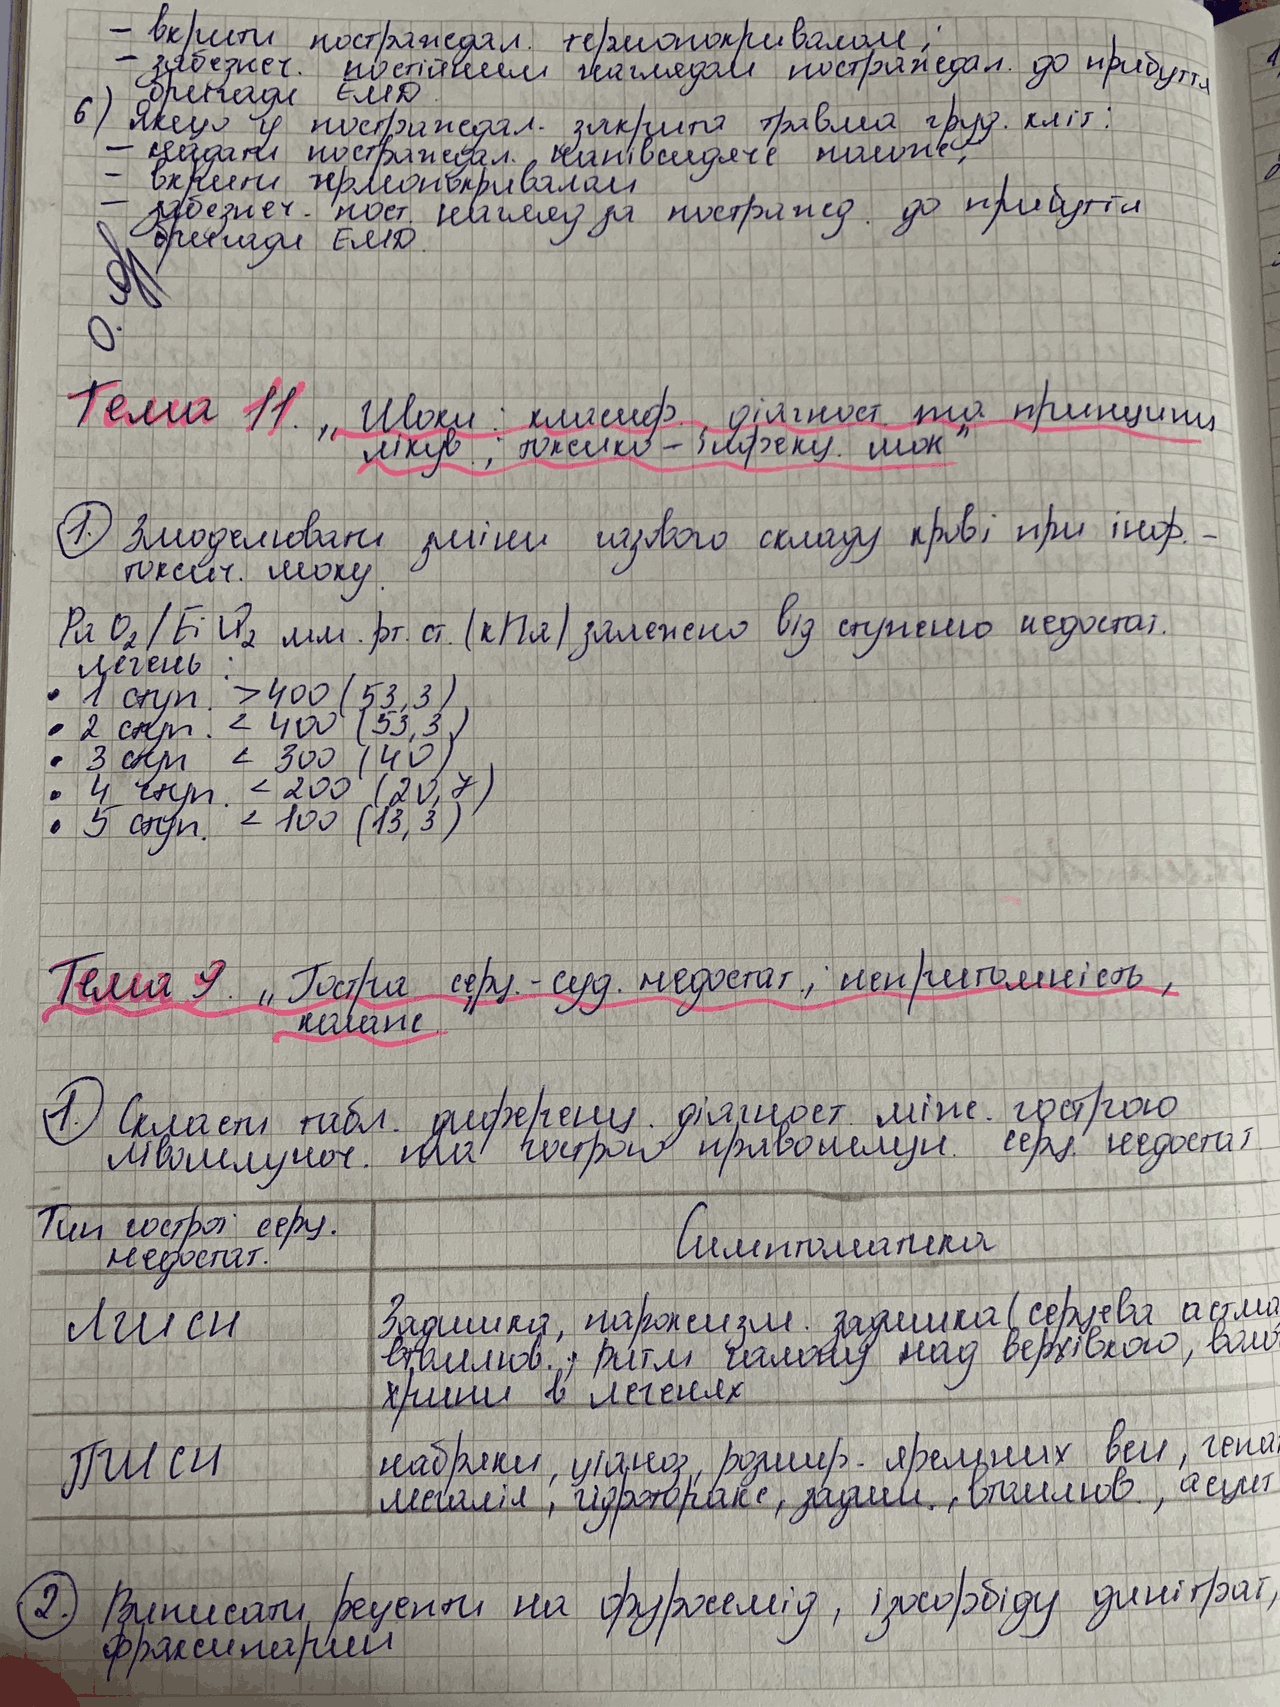 – вкрити постраждал. термопокривалом;
– забезпеч. постійним наглядом постраждал. до прибуття
бригади ЕМД.
6) Якщо у постраждал. закрита травма груд. кліт:
– надати постраждал. напівсидяче полож.;
– вкрити термопокривалом
– забезпеч. пост. нагляд за постражд. до прибуття
бригади ЕМД.
Тема 11. „Шоки: класиф., діагност. та принципи
лікув.; токсико-інфекц. шок"
1. Змоделювати зміни газового складу крові при інф.-
токсич. шоку.
PaO2/FiO2 мм.рт.ст. (кПа) залежно від ступеню недостат.
легень:
• 1 ступ. >400 (53,3)
• 2 ступ. < 400 (53,3)
• 3 ступ < 300 (40)
• 4 ступ. < 200 (20,7)
• 5 ступ. < 100 (13,3)
Тема 9. „Гостра серц.-суд. недостат.; непритомність,
колапс."
1. Скласти табл. диференц. діагност. між. гострою
лівошлуноч. та гострою правошлун. серц. недостат
Тип гострої серц.
недостат.
Симптоматика
ЛШСН
Задишка, пароксизм. задишка (серцева астма
втомлюв.; ритм галопу над верхівкою, воло
хрипи в легенях
ПШСН
набряки, ціаноз, розшир. яремних вен, гепат
мегалія, гідроторакс, задиш., втомлюв., асцит
2. Виписати рецепти на фуросемід, ізосорбіду динітрат,
фраксипарин